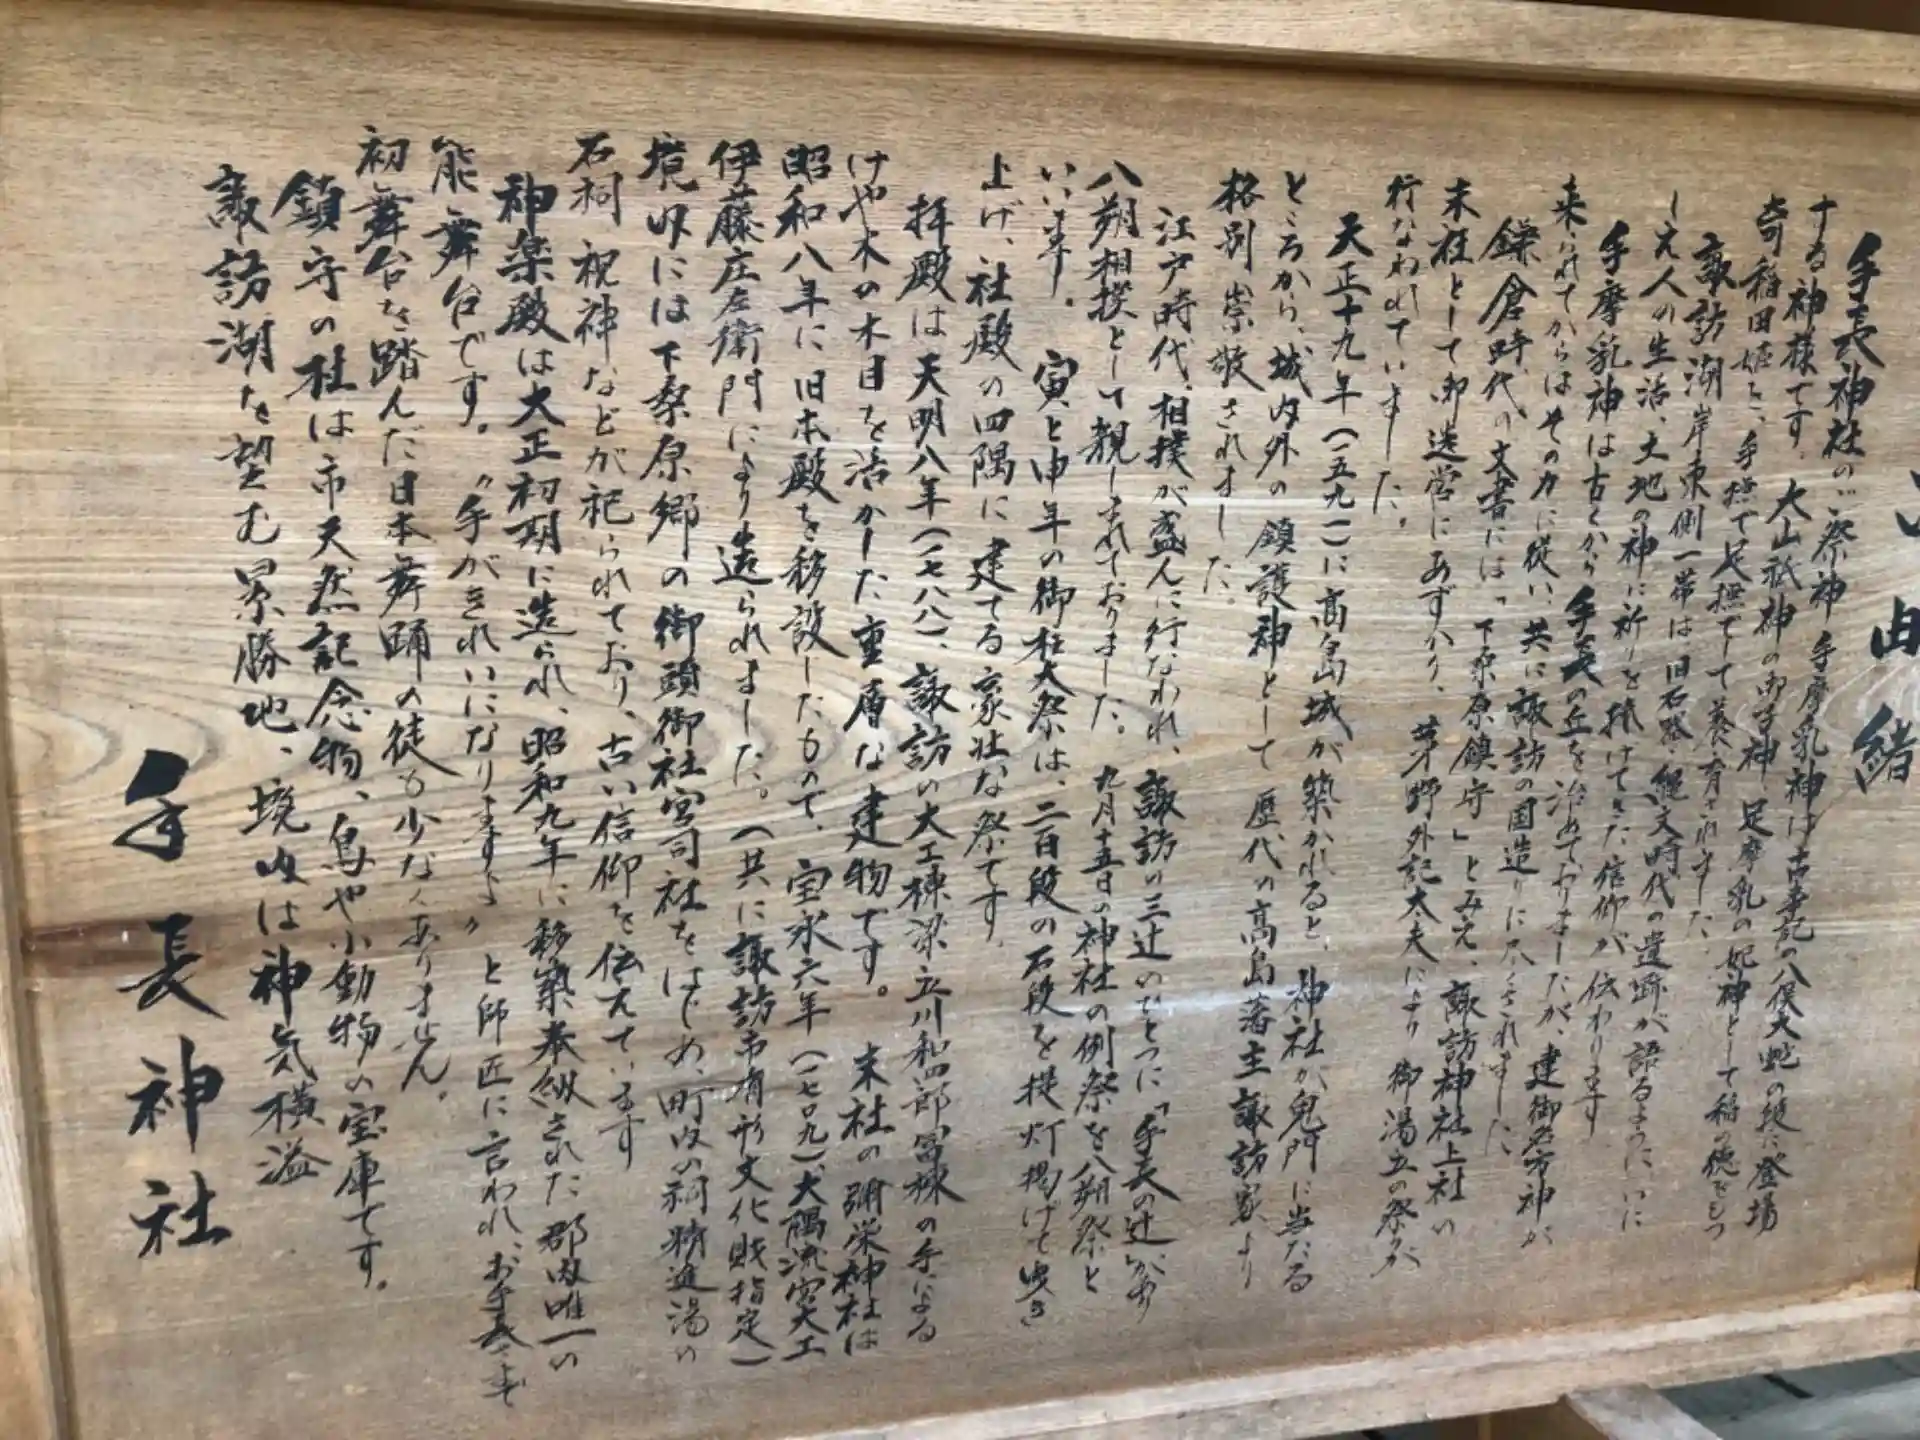 由緒
手長神社のご祭神 手摩乳神は古事記の八俣大蛇の段に登場
する神様です。大山祇神の御子神、足摩乳の妃神として稲の徳をもつ
奇稲田姫を、手撫で足撫でして養育されました。
諏訪湖岸東側一帯は旧石器、縄文時代の遺跡が語るように、いに
しえ人の生活、土地の神に祈りを捧げてきた信仰が伝わります
手摩乳神は古くから手長の丘を治めておりましたが、建御名方神が
来られてからはその力に従い、共に諏訪の国造りに尽くされました
鎌倉時代の文書には「下桑原鎮守」とみえ、諏訪神社上社の
末社として御造営にあずかり、茅野外記太夫により御湯立の祭が
行なわれていました。
天正十九年(一五九一)に高島城が築かれると、神社が鬼門に当たる
ところから、城内外の鎮護神として歴代の高島藩主諏訪家より
格別崇敬されました。
江戸時代、相撲が盛んに行なわれ、諏訪の三辻のひとつに「手長の辻」があり
八朔相撲として親しまれておりました。九月十五日の神社の例祭を八朔祭と
いいます。寅と申年の御柱大祭は、二百段の石段を提灯掲げて曳き
上げ、社殿の四隅に建てる豪壮な祭です。
拝殿は天明八年(一七八八)、諏訪の大工棟梁立川和四郎冨棟の手による
けや木の木目を活かした重層な建物です。末社の彌栄神社は
昭和八年に旧本殿を移設したもので、宝永六年(一七〇九)大隅流宮大工
伊藤庄左衛門により造られました。(共に諏訪市有形文化財指定)
境内には下桑原郷の御頭御社宮司社をはじめ、町内の祠、精進湯の
石祠 祝神などが祀られており、古い信仰を伝えています
神楽殿は大正初期に造られ、昭和九年に移築奉納された郡内唯一の
能舞台です。〃手がきれいになりますよ〃と師匠に言われ、
初舞台を踏んだ日本舞踊の徒も少なくありません。
鎮守の杜は市天然記念物、鳥や小動物の宝庫です。
諏訪湖を望む景勝地、境内は神気横溢
手長神社